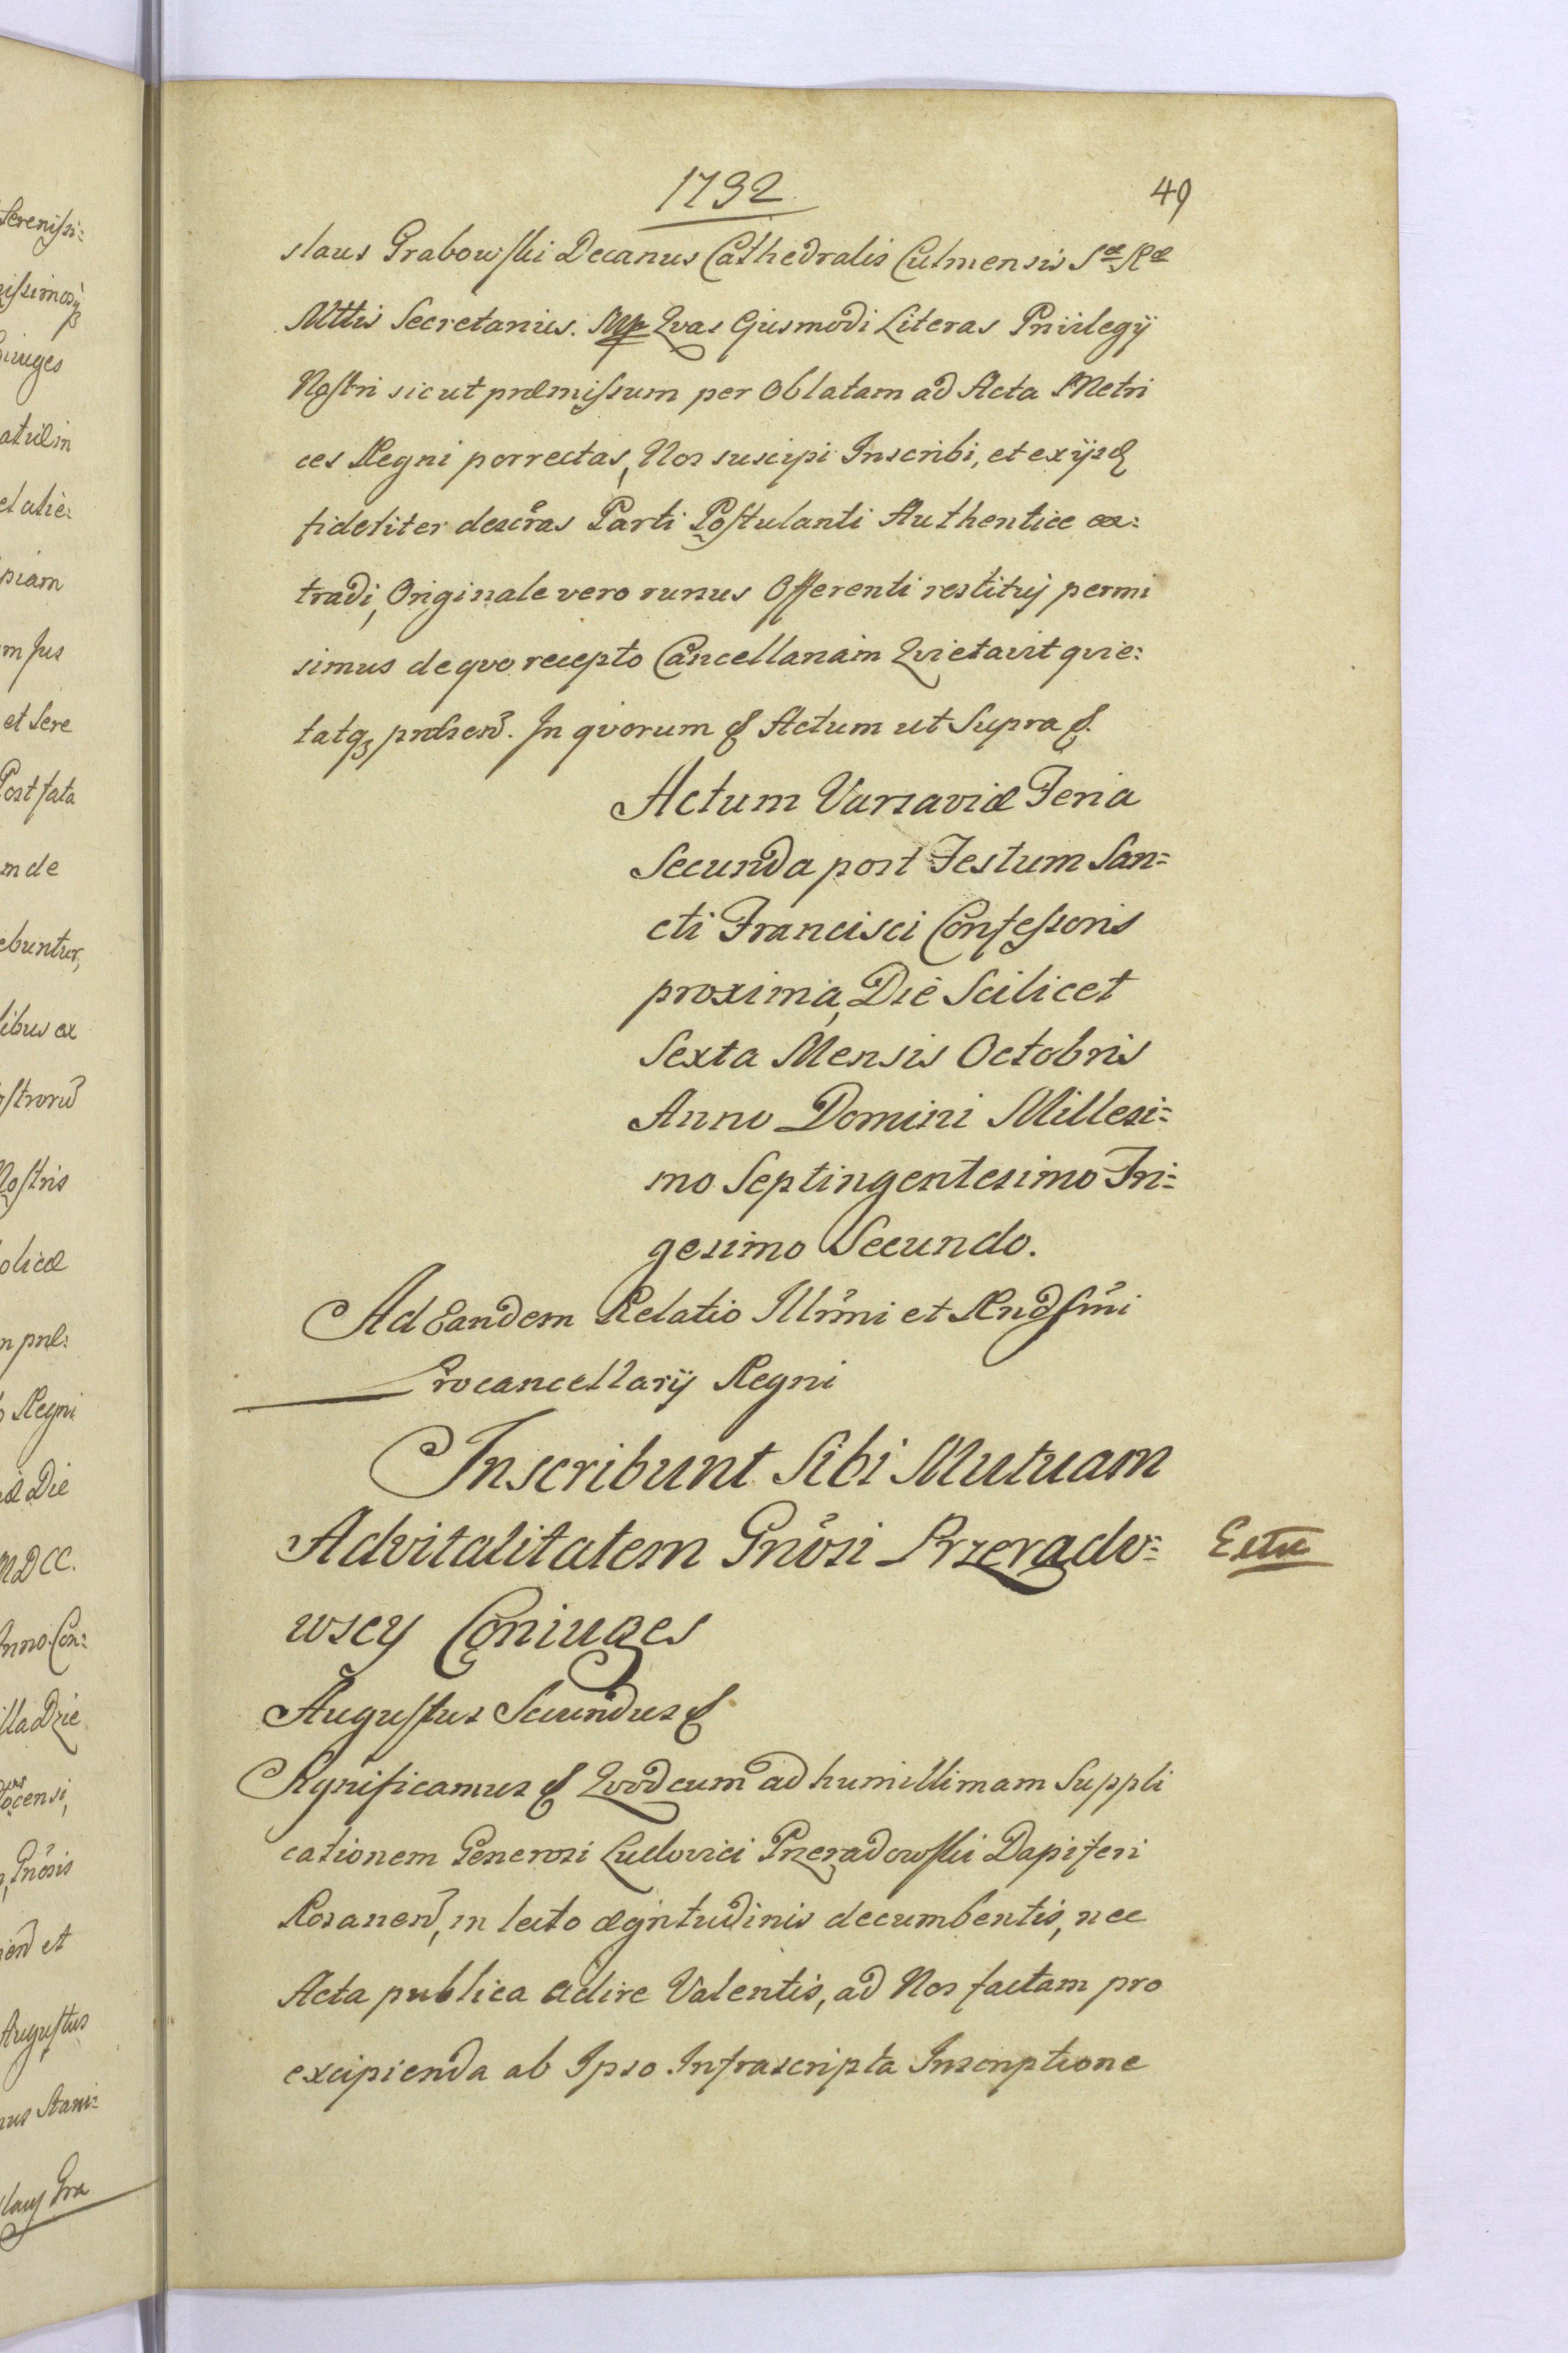 1732
49
slaus Grabowski Decanus Cathedralis Culmensis Sæ Ræ
Mttis Secretarius. Mp Qvas Ejusmodi Literas Privilegÿ
Nostri sicut præmissum per Oblatam ad Acta Metri
ces Regni porrectas, Nos suscipi Inscribi, et ex ijsd
fideliter descr̃as Parti Postulanti Authentice ex:
tradi, Originale vero rursus Offerenti restituj permi
simus de qvo recepto Cancellariam Qvietavit qvie:
tatq₃ præsen̄. In qvorum & Actum ut Supra &.
Actum Varsaviæ Feria
Secunda post Festum San=
cti Francisci Confessoris
proxima, Die Scilicet
Sexta Mensis Octobris
Anno Domini Millesi=
mo Septingentesimo Tri=
gesimo Secundo.
Ad Eandem Relatio Illr̃mi et Rndssmi
Procancellarÿ Regni
Inscribunt Sibi Mutuam
Advitalitatem Gnõsi Przerado=
wscy Coniuges
Augustus Secundus &
Significamus & Qvod cum ad humillimam Suppli
cationem Generosi Ludovici Przeradowski Dapiferi
Rosanen̄, in lecto ægritudinis decumbentis, nec
Acta publica adire Valentis, ad Nos factam pro
excipienda ab Ipso Infrascripta Inscriptione
Serenissi:
issimosq₃
iuges
piam
m Jus
et Sere
Post fata
m de
ebuntur,
libus ex
ostrorū
Nostris
olicæ
n præ:
Regni
Die
MDCC.
Anno. Con:
censi,
Gnõsis
et
Augustus
nus Stani:
slaus Gra